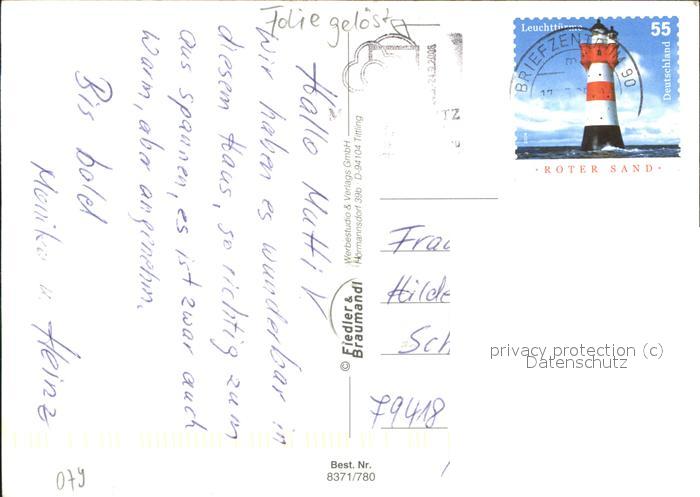 Folie gelöst
Hallo Mutti V.
Wir haben es wunderbar in
diesem Haus, so richtig zum
aus spannen, es ist zwar auch
warm, aber angenehm.
Bis bald
Monika u. Heinz
079
© Fiedler &
Braumandl
Werbestudio & Verlags GmbH
Hörmannsdorf 39b · D-94104 Tittling
Best. Nr.
8371/780
Leuchttürme
55
Deutschland
· ROTER SAND ·
BRIEFZENTRUM 90
Frau
Hilde
Sch
79418
privacy protection (c)
Datenschutz